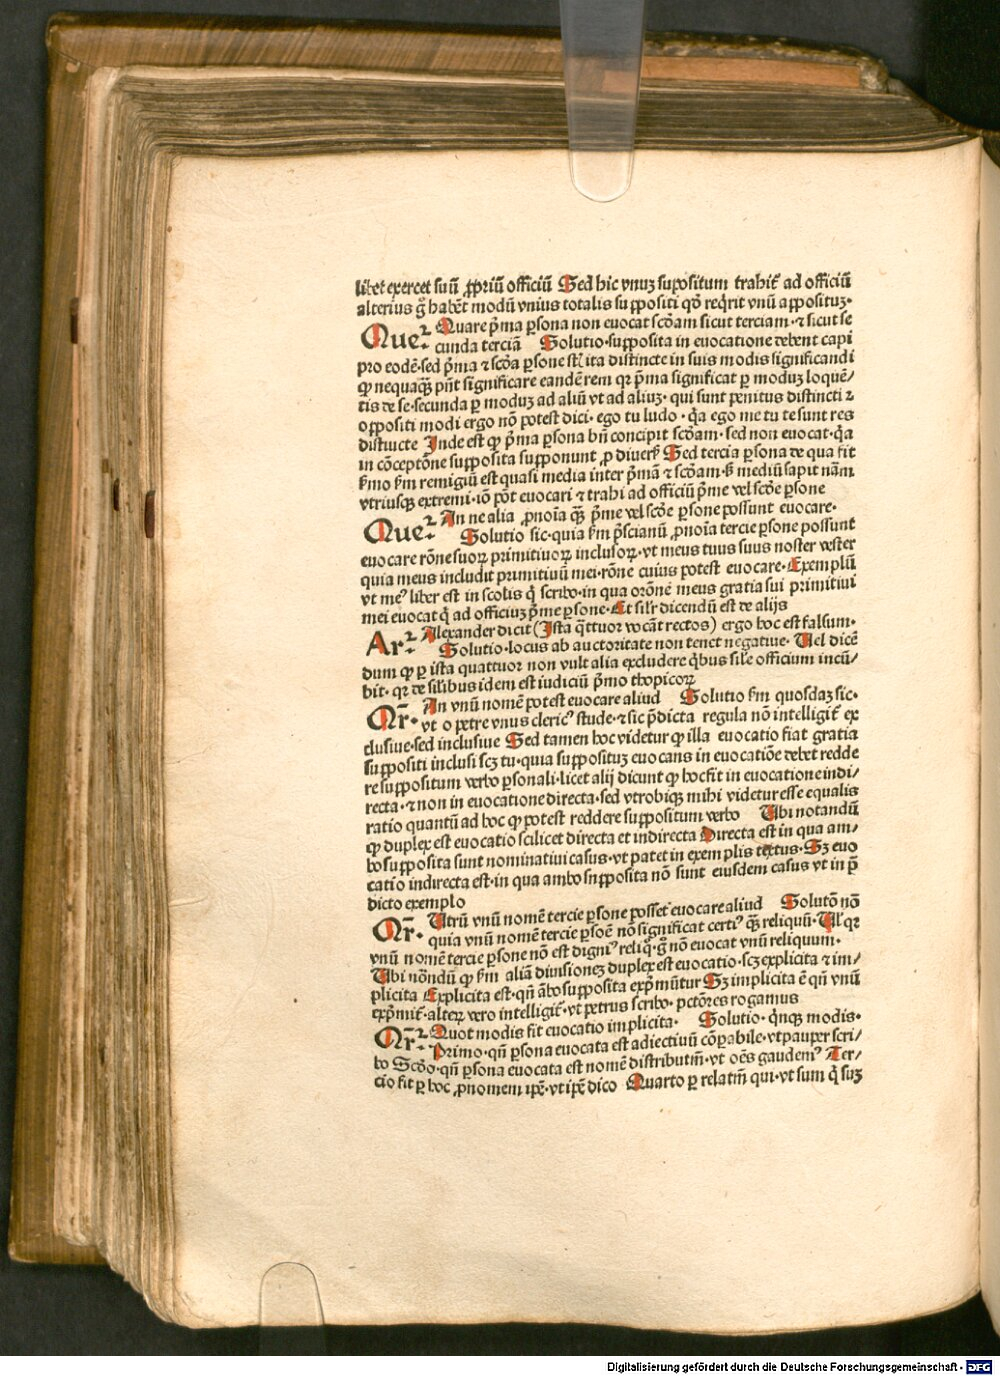 libet exercet suū ꝓpriū officiū Sed hic vnuʒ supositum trahit᷑ ad officiū
alterius gͦ habēt modū vnius totalis suppositi qd̄ reqͥrit vnū appositūʒ·
Que2· Quare pͥma ꝑsona non euocat scd̄am sicut terciam·⁊ sicut se
cunda terciā Solutio·supposita in euocatione debent capi
pro eodē·sed pͥma ⁊ scd̄a ꝑsone sūt ita distincte in suis modis significandi
ꝙ nequaqͣꝫ pn̄t significare eandē rem qr pͥma significat ꝑ moduʒ loquē/
tis de se·secunda ꝑ moduʒ ad aliū vt ad aliuʒ· qui sunt penitus distincti ⁊
oppositi modi ergo nō potest dici· ego tu ludo · qͥa ego me tu te sunt res
distucte Inde est ꝙ pͥma ꝑsona bn̄ concipit scd̄am· sed non euocat·qͥa
in cōceptōne supposita supponunt ꝓ diuers Sed tercia ꝑsona de qua fit
s̄mo s̄m remigiū est quasi media inter pͥmā ⁊ scd̄am·s̄ mediū sapit nām
vtriusqꝫ extremi·iō pōt euocari ⁊ trahi ad officiū pͥme vel scd̄e ꝑsone
Que2· An ne alia ꝓnoīa qͣꝫ pͥme vel scd̄e ꝑsone possunt euocare·
Solutio sic·quia s̄m pͥscianū ꝓnoīa tercie ꝑsone possunt
euocare rōne suoꝝ primitiuoꝝ inclusoꝝ·vt meus tuus suus noster vester
quia meus includit primitiuū mei·rōne cuius potest euocare·Exemplū
vt meꝰ liber est in scolis qͥ scribo·in qua orōne meus gratia sui primitiui
mei euocat qͥ ad officiuʒ pͥme ꝑsone·Et silr dicendū est de alijs
Ar2· Alexander dicit (Ista qͣttuor vocāt rectos) ergo hoc est falsum·
Solutio·locus ab auctoritate non tenet negatiue· Uel dicē
dum ꝙ ꝑ ista quattuor non vult alia excludere qͥbus sil'e officium incū/
bit· qr de silibus idem est iudiciū pͥmo thopicoꝝ
Qr̄· An vnū nomē potest euocare aliud Solutio s̄m quosdaʒ sic·
vt o petre vnus clericꝰ stude·⁊ sic pͥdicta regula nō intelligit᷑ ex
clusiue·sed inclusiue Sed tamen hoc videtur ꝙ illa euocatio fiat gratia
suppositi inclusi scʒ tu·quia suppositūʒ euocans in euocatiōe debet redde
re suppositum verbo ꝑsonali·licet alij dicunt ꝙ hoc fit in euocatione indi/
recta·⁊ non in euocatione directa·sed vtrobiqꝫ mihi videtur esse equalis
ratio quantū ad hoc ꝙ potest reddere suppositum verbo Ubi notandū
ꝙ duplex est euocatio scilicet directa et indirecta Directa est in qua am/
bo supposita sunt nominatiui casus·vt patet in exemplis textus·Sʒ euo
catio indirecta est·in qua ambo snpposita nō sunt eiusdem casus vt in p̄
dicto exemplo
Qr̄· Utrū vnū nomē tercie ꝑsone posset euocare aliud Solutō nō
quia vnū nomē tercie ꝑsoē nō significat certiꝰ qͣꝫ reliquū·Ul' qr
vnū nomē tercie ꝑsone nō est digniꝰ reliqͦ·gͦ nō euocat vnū reliquum·
Ubi nōndū ꝙ s̄m aliā diuisioneʒ duplex est euocatio·scʒ explicita ⁊ im/
plicita Explicita est·qn̄ ābo supposita expͥmūtur Sʒ implicita ē qn̄ vnū
expͥmit᷑·alteꝝ vero intelligit᷑·vt petrus scribo· pctōres rogamus
Qr̄2· Quot modis fit euocatio implicita· Solutio· qͥnqꝫ modis·
Primo·qn̄ ꝑsona euocata est adiectiuū cōꝑabile·vt pauper scri/
bo Scd̄o·qn̄ ꝑsona euocata est nomē distributīm·vt oēs gaudemꝰ Ter/
cio fit ꝑ hoc ꝓnomem ip̄e·vt ip̄e dico Quarto ꝑ relatīm qui·vt sum qͥ suʒ
Digitalisierung gefördert durch die Deutsche Forschungsgemeinschaft - DFG